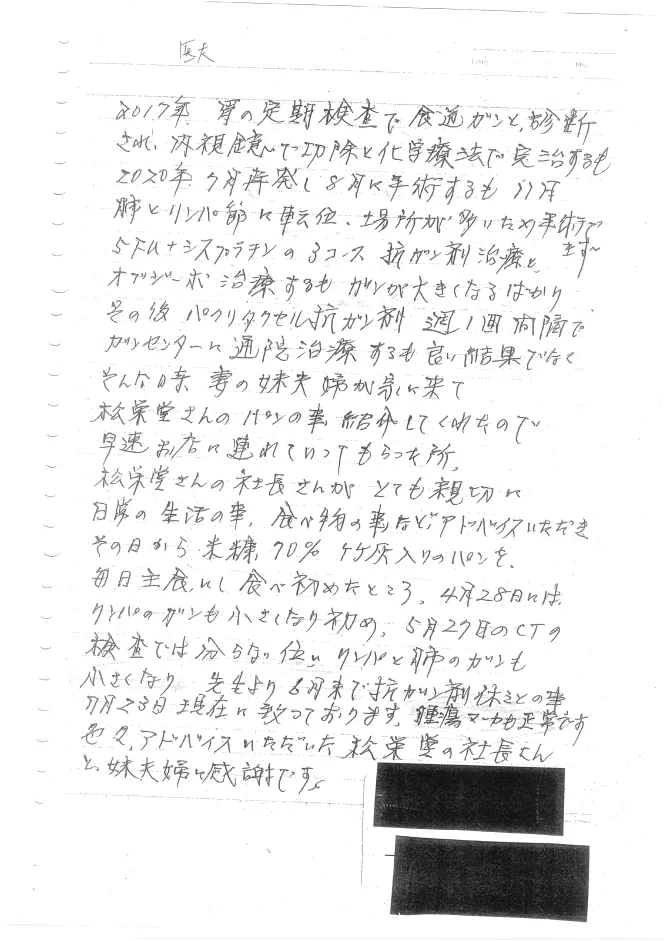 2017年 胃の定期検査で食道ガンと、診断
され、内視鏡にて切除と化学療法で完治するも
2020年 7月再発し8月に手術するも 11月
肺とリンパ節に転位、場所が多いため手術でき
ず
5FU+シスプラチンの3コース 抗ガン剤治療と、
オプジーボ治療するもガンが大きくなるばかり
その後 パクリタクセル抗ガン剤 週1回間隔で
ガンセンターに通院治療するも良い結果でなく
そんな時 妻の妹夫婦が見に来て
松栄堂さんのパンの事 紹介してくれたので
早速お店に連れていってもらった所、
松栄堂さんの社長さんが とても親切に
日常の生活の事、食べ物の事など、アドバイスいただき
その日から 米糠、70% 竹灰入りのパンを、
毎日主食にし食べ初めたところ、4月28日には
リンパのガンも小さくなり初め、5月27日のCTの
検査では分らない位に リンパと肺のガンも
小さくなり 先生より 6月末で抗ガン剤休みとの事
7月23日現在に致っております。腫瘍マーカも正常です
色々、アドバイスいただいた 松栄堂の社長さん
と、妹夫婦に感謝です。